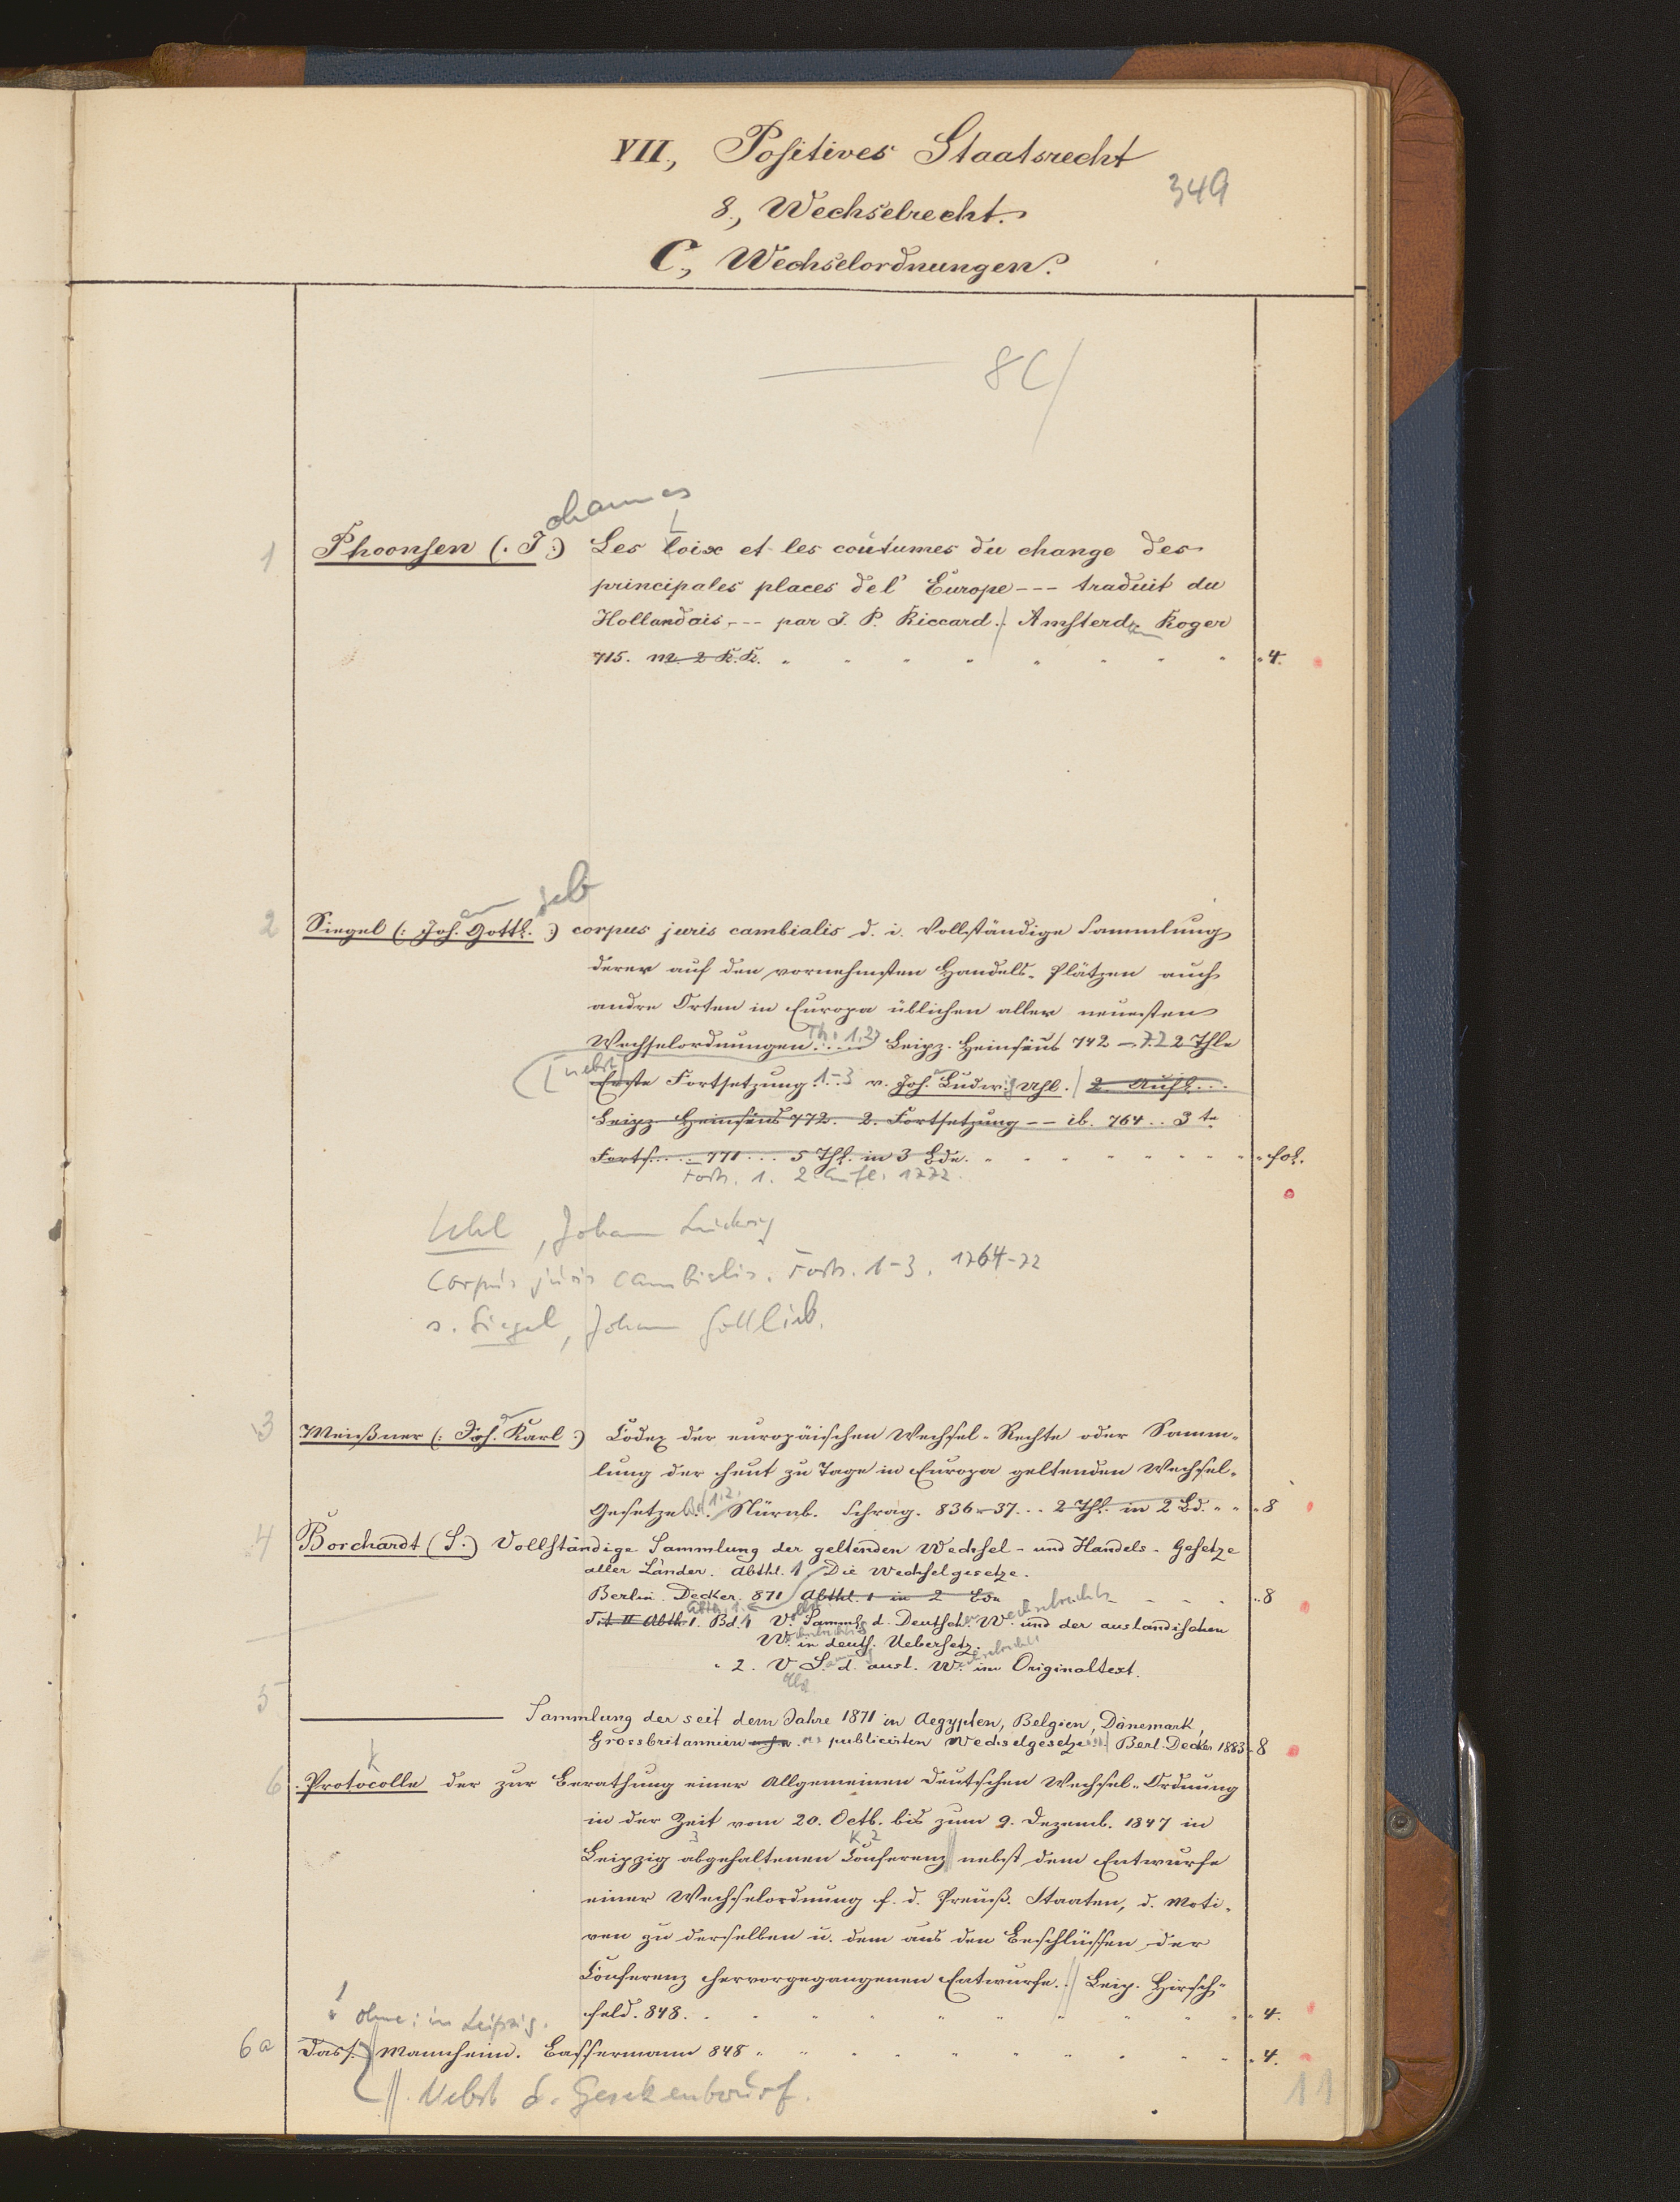 VII., Positives Staatsrecht
349
8., Wechselrecht.
C., Wechselordnungen.
8 C/
ohannes
L
1 Phoonsen (. J :) Les loix et les coûtumes du change des
principales places del' Europe --- traduit du
Hollandais, -- par J. P. Riccard. / Amsterd. Roger
715. m. 2 K.K. " 4.
2 Siegel (: Joh. Gottl. :) corpus juris cambialis d. i. Vollständige Sammlung
derer auf den vornehmsten Handels-Plätzen auch
andre Orten in Europa üblichen aller neuesten
Wechselordnungen Th. 1.2 Leipz. Heinsius 742 - 2 Thle
[nebst] Erste Fortsetzung 1-3 v. Joh. Ludwig Uhl. / 2. Aufl...
Leipz. Heinsius 772. 2. Fortsetzung -- ib. 764 .. 3te
Forts..... 771 ... 5 Thl. in 3 Bde. " fol.
Forts. 1. 2. Aufl. 1772.
Uhl, Johann Ludwig
Corpus juris cambialis. Forts. 1-3. 1764-72
s. Siegel, Johann Gottlieb.
3 Meißner (: Joh. Karl :) Codex der europäischen Wechsel-Rechte oder Samm-
lung der heut zu Tage in Europa geltenden Wechsel-
Gesetze Bd 1.2. Nürnb. Schrag. 836-37... 2 Thl. in 2 Bd. " 8
4 Borchardt (S.) Vollständige Sammlung der geltenden Wechsel- und Handels-Gesetze
aller Länder. Abthl. 1 Die Wechselgesetze.
Berlin. Decker. 871 Abthl. 1 in 2 Bdn " 8
Abth. 1.
Tit II Abth 1. Bd. 1 V. Samml. d. Deutsch. W. und der ausländischen
W. in deuts. Uebersetz.
" 2. V S. d. ausl. W. im Originaltext.
5 ——— Sammlung der seit dem Jahre 1871 in Aegypten, Belgien, Dänemark,
Grossbritannien publicirten Wechselgesetze / Berl. Decker 1883 " 8
k
6 Protocolle der zur Berathung einer Allgemeinen Deutschen Wechsel-Ordnung
in der Zeit vom 20. Octb. bis zum 9. Dezemb. 1847 in
3 K 2
Leipzig abgehaltenen Conferenz nebst dem Entwurfe
einer Wechselordnung f. d. Preuß. Staaten, d. Moti-
ven zu derselben u. dem aus den Beschlüssen der
Conferenz hervorgegangenen Entwurfe. // Leip. Hirsch-
feld. 848. " 4.
ohne: in Leipzig.
6a Dass. Mannheim. Bassermann 848 " 4.
// Nebst d. Gesetzentwurf.
11